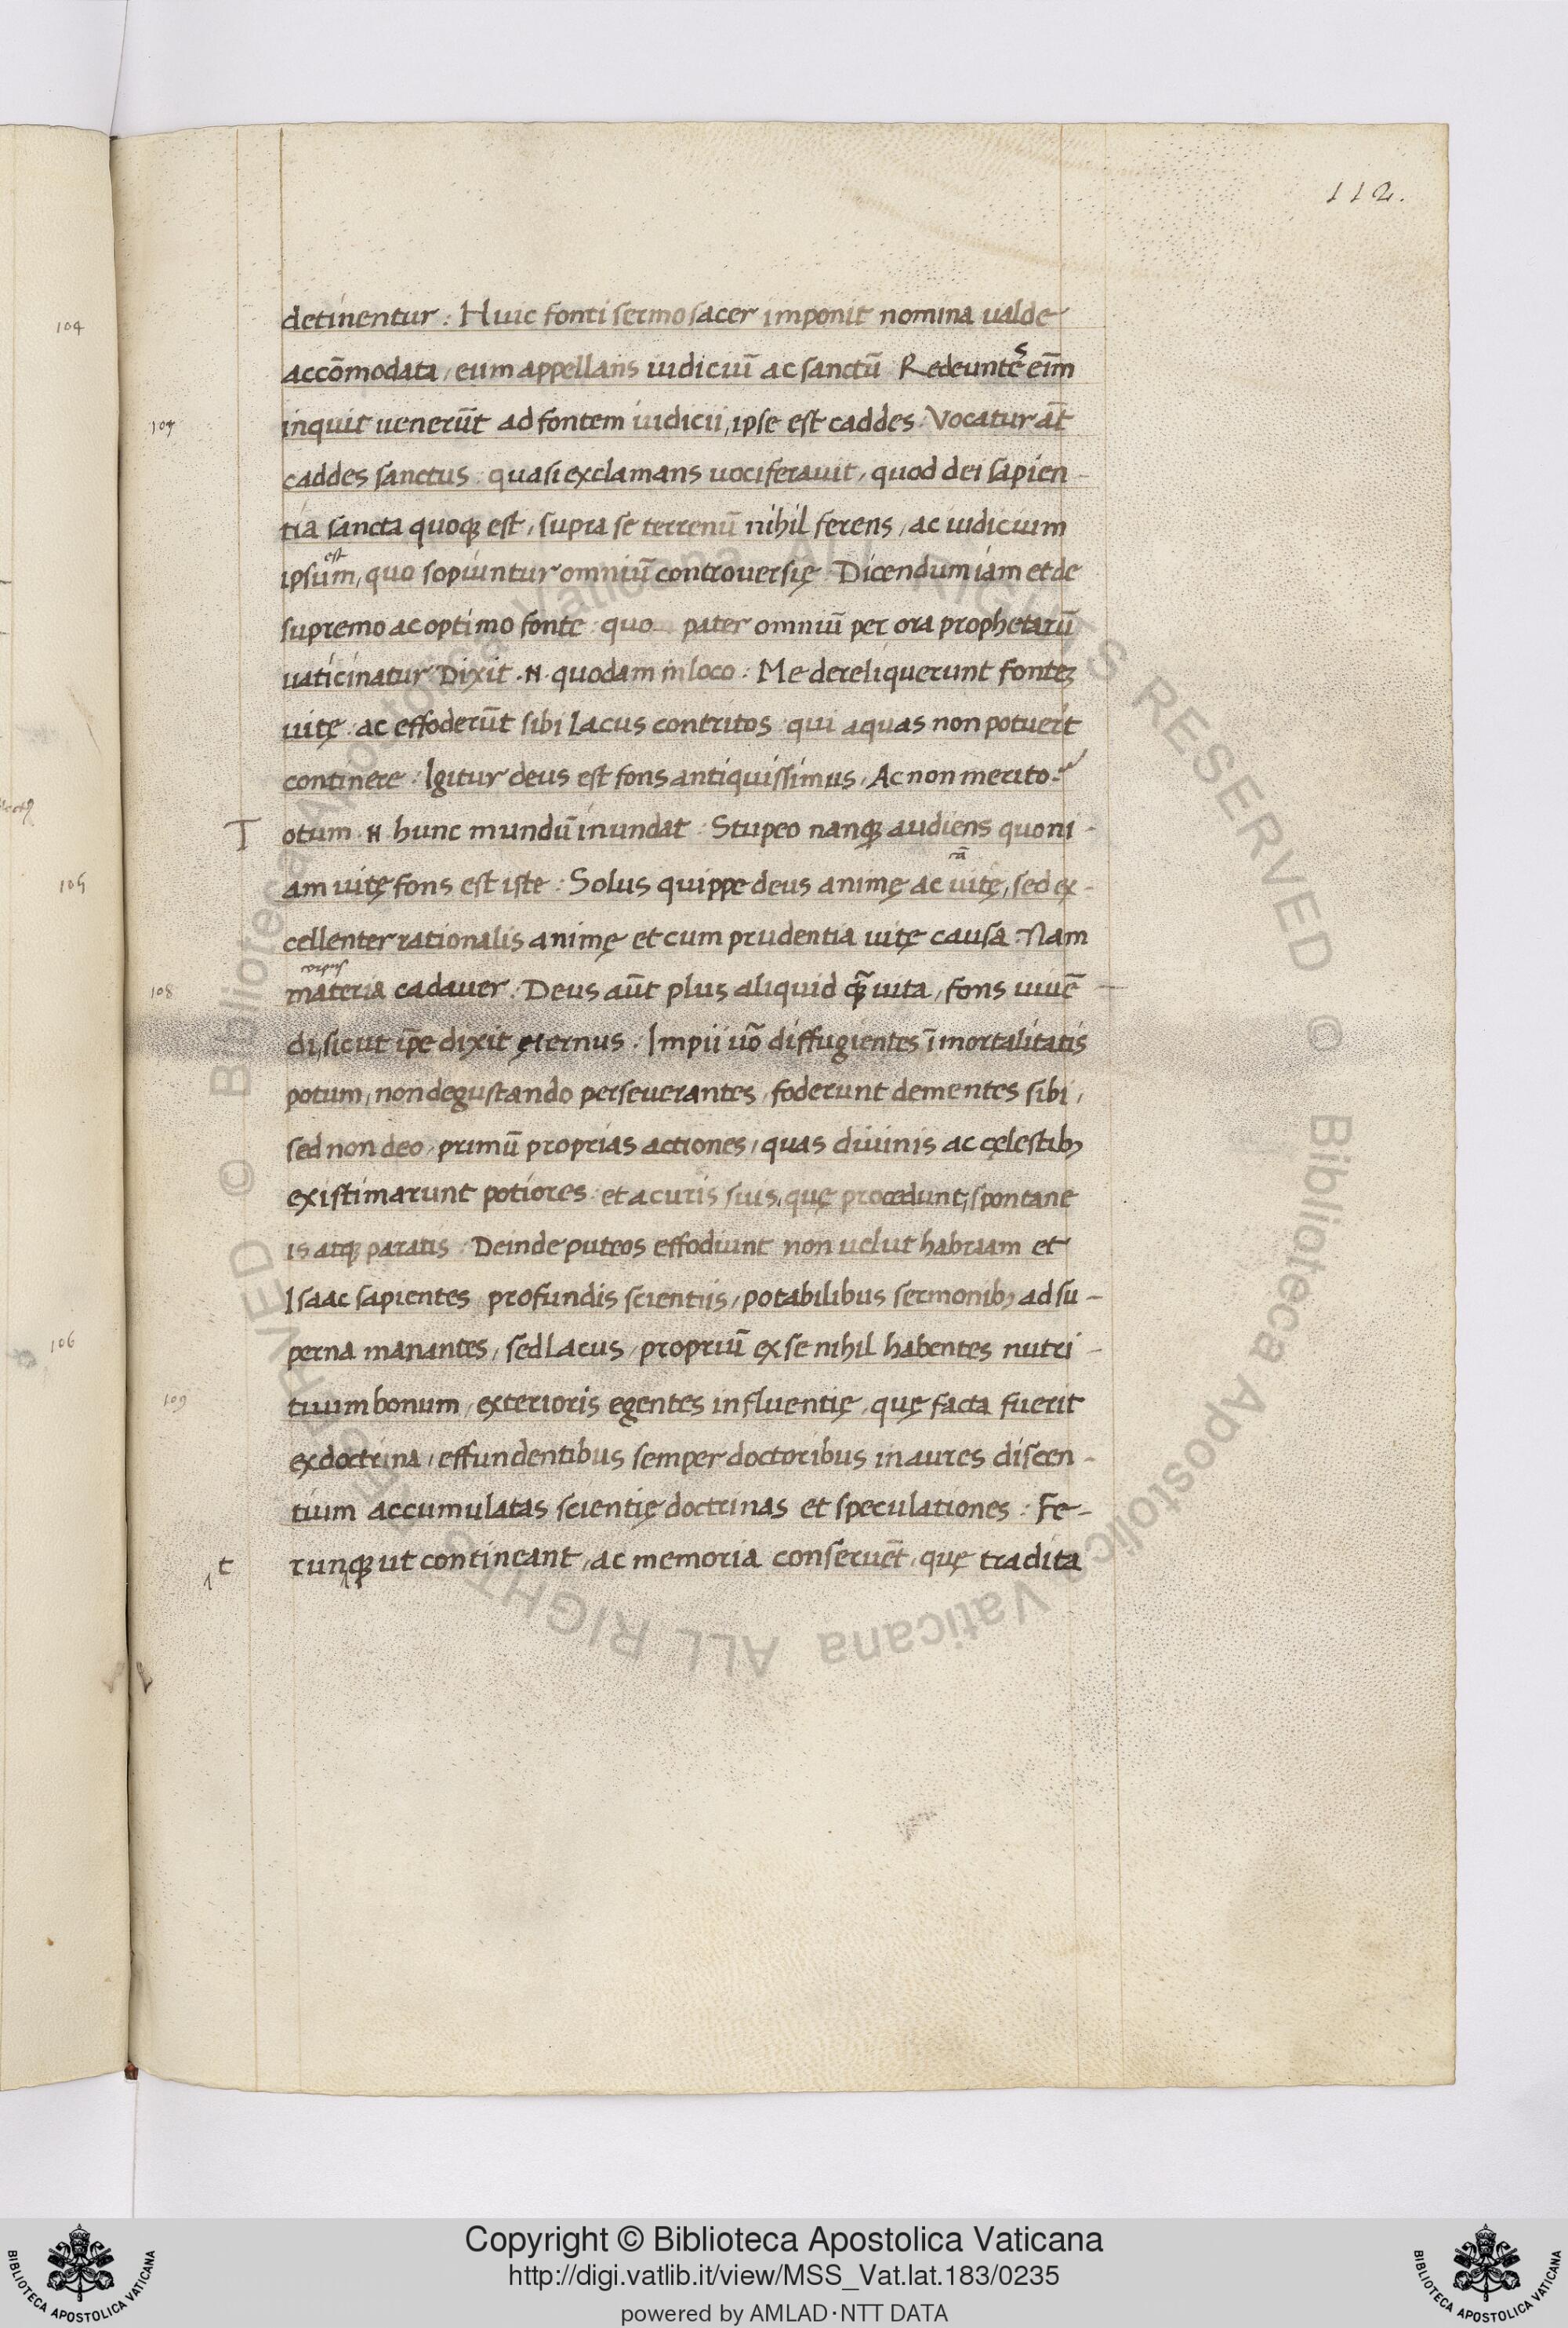 112.
detinentur : Huic fonti sermo sacer imponit nomina ualde
accōmodata, eum appellans iudiciū ac sanctū : Redeuntes eīm
107 inquit uenerūt ad fontem iudicii, ipse est caddes : Vocatur āt
caddes sanctus : quasi exclamans uociferauit, quod dei sapien-
tia sancta quoqꝫ est, supra se terrenū nihil ferens, ac iudicium
est
ipsum, quo sopiuntur omniū controuersię : Dicendum iam et de
supremo ac optimo fonte : quo pater omniū per ora prophetarū
uaticinatur Dixit .N. quodam in loco : Me dereliquerunt fonteꝫ
uitę : ac effoderūt sibi lacus contritos : qui aquas non potuerīt
continere : Igitur deus est fons antiquissimus, Ac non merito?
Totum .N. hunc mundū inundat : Stupeo nanqꝫ audiens quoni-
am uitę fons est iste : Solus quippe deus animę ac uitę, sed ex-
cellenter rationalis animę et cum prudentia uitę causa : Nam
corpus
108 materia cadauer : Deus aūt plus aliquid qꝫ̄ uita, fons uiuē-
di, sicut ip̄e dixit ęternus : Impii uō diffugientes īmortalitatis
potum, non degustando perseuerantes, foderunt dementes sibi,
sed non deo, primū proprias actiones, quas diuinis ac cęlestibꝫ
existimarunt potiores : et a curis suis, quę procedunt, spontane
is atqꝫ paratis : Deinde puteos effodiunt non uelut habraam et
Isaac sapientes profundis scientiis, potabilibus sermonibꝫ ad su-
perna manantes, sed lacus, propriū ex se nihil habentes nutri-
109 tiuum bonum, exterioris egentes influentię, quę facta fuerit
ex doctrina, effundentibus semper doctoribus in aures discen-
tium accumulatas scientię doctrinas et speculationes : Fe-
t runqꝫ ut contineant, ac memoria conseruēt, quę tradita
104
105
106
© Biblioteca Apostolica Vaticana ALL RIGHTS RESERVED © Biblioteca Apostolica Vaticana ALL RIGHTS RESERVED
BIBLIOTECA APOSTOLICA VATICANA
Copyright © Biblioteca Apostolica Vaticana
http://digi.vatlib.it/view/MSS_Vat.lat.183/0235
powered by AMLAD·NTT DATA
BIBLIOTECA APOSTOLICA VATICANA